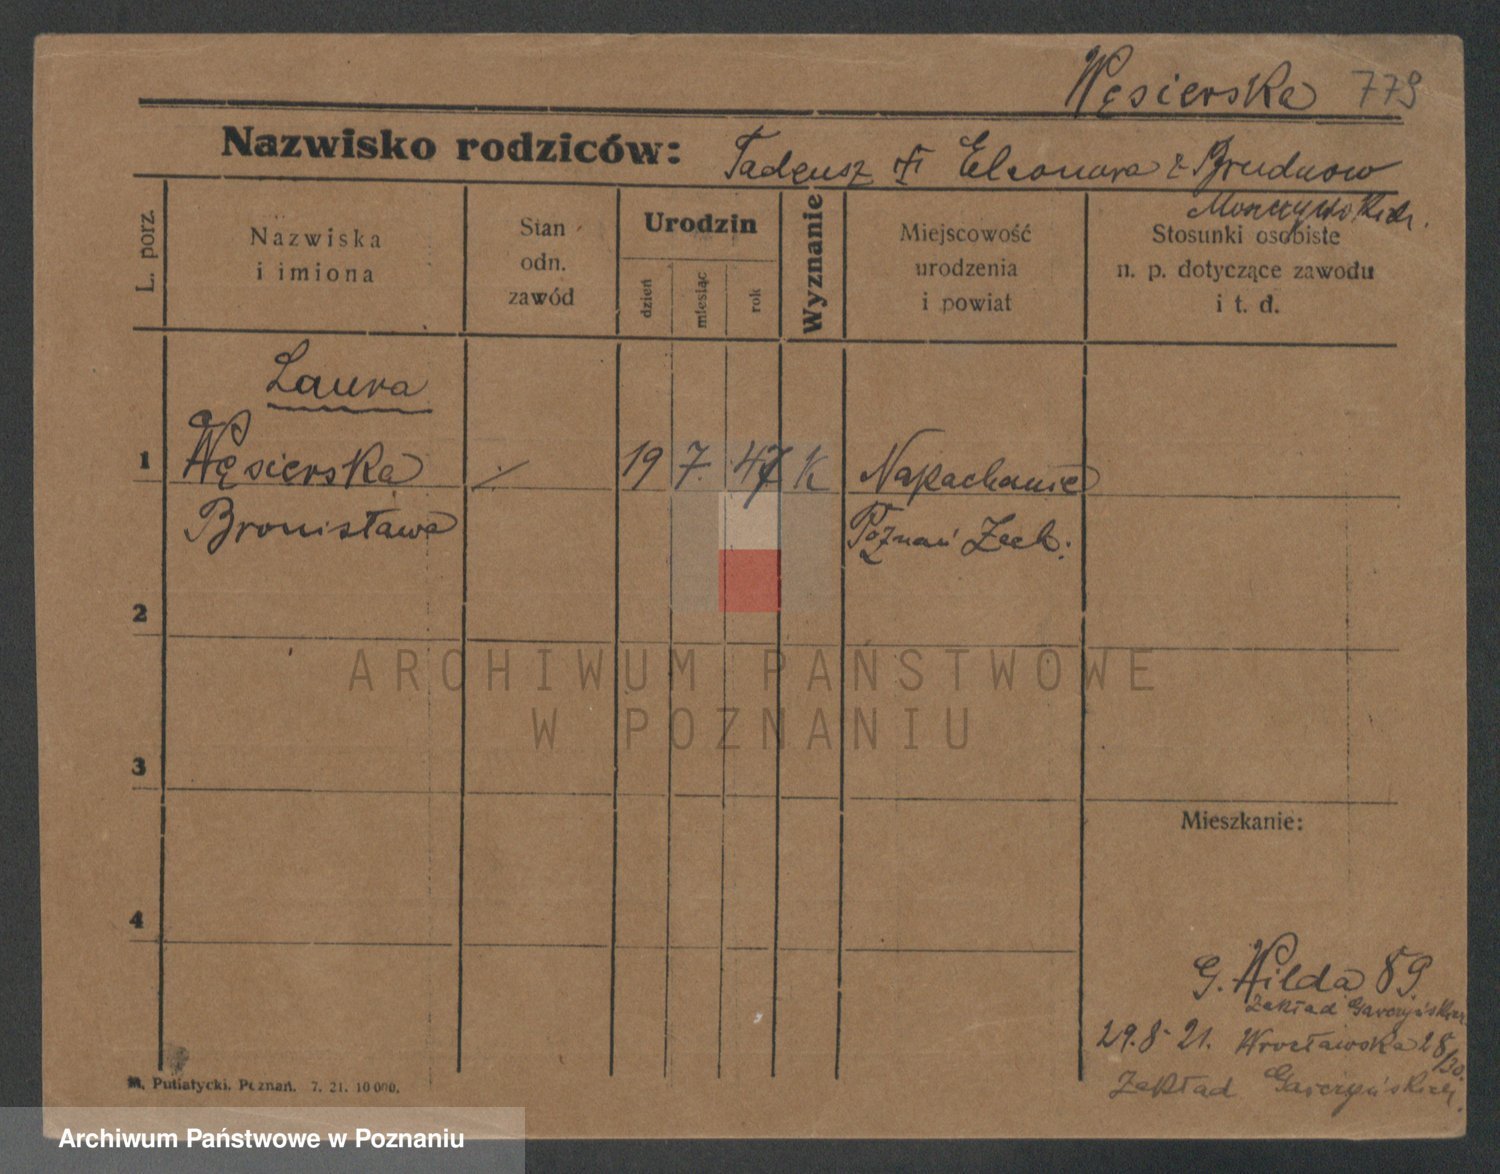 Węsierska 779
Nazwisko rodziców: Tadeusz Eleonora z Brudnow
L. porz.
Nazwiska i imiona
Stan odn. zawód
Urodzin
dzień
miesiąc
rok
Wyznanie
Miejscowość urodzenia i powiat
Stosunki osobiste n. p. dotyczące zawodu i t. d.
Laura
1 Węsierska 19 7. 47 K Napachanie
Bronisława Poznań Zach.
2
3
Mieszkanie:
4
G. Wilda 89.
Zakład Garczyńskich
29.8-21. Wrocławska 28/30.
Zakład Garczyńskich.
M. Putiatycki, Poznań. 7. 21. 10 000.
ARCHIWUM PAŃSTWOWE
W POZNANIU
Archiwum Państwowe w Poznaniu